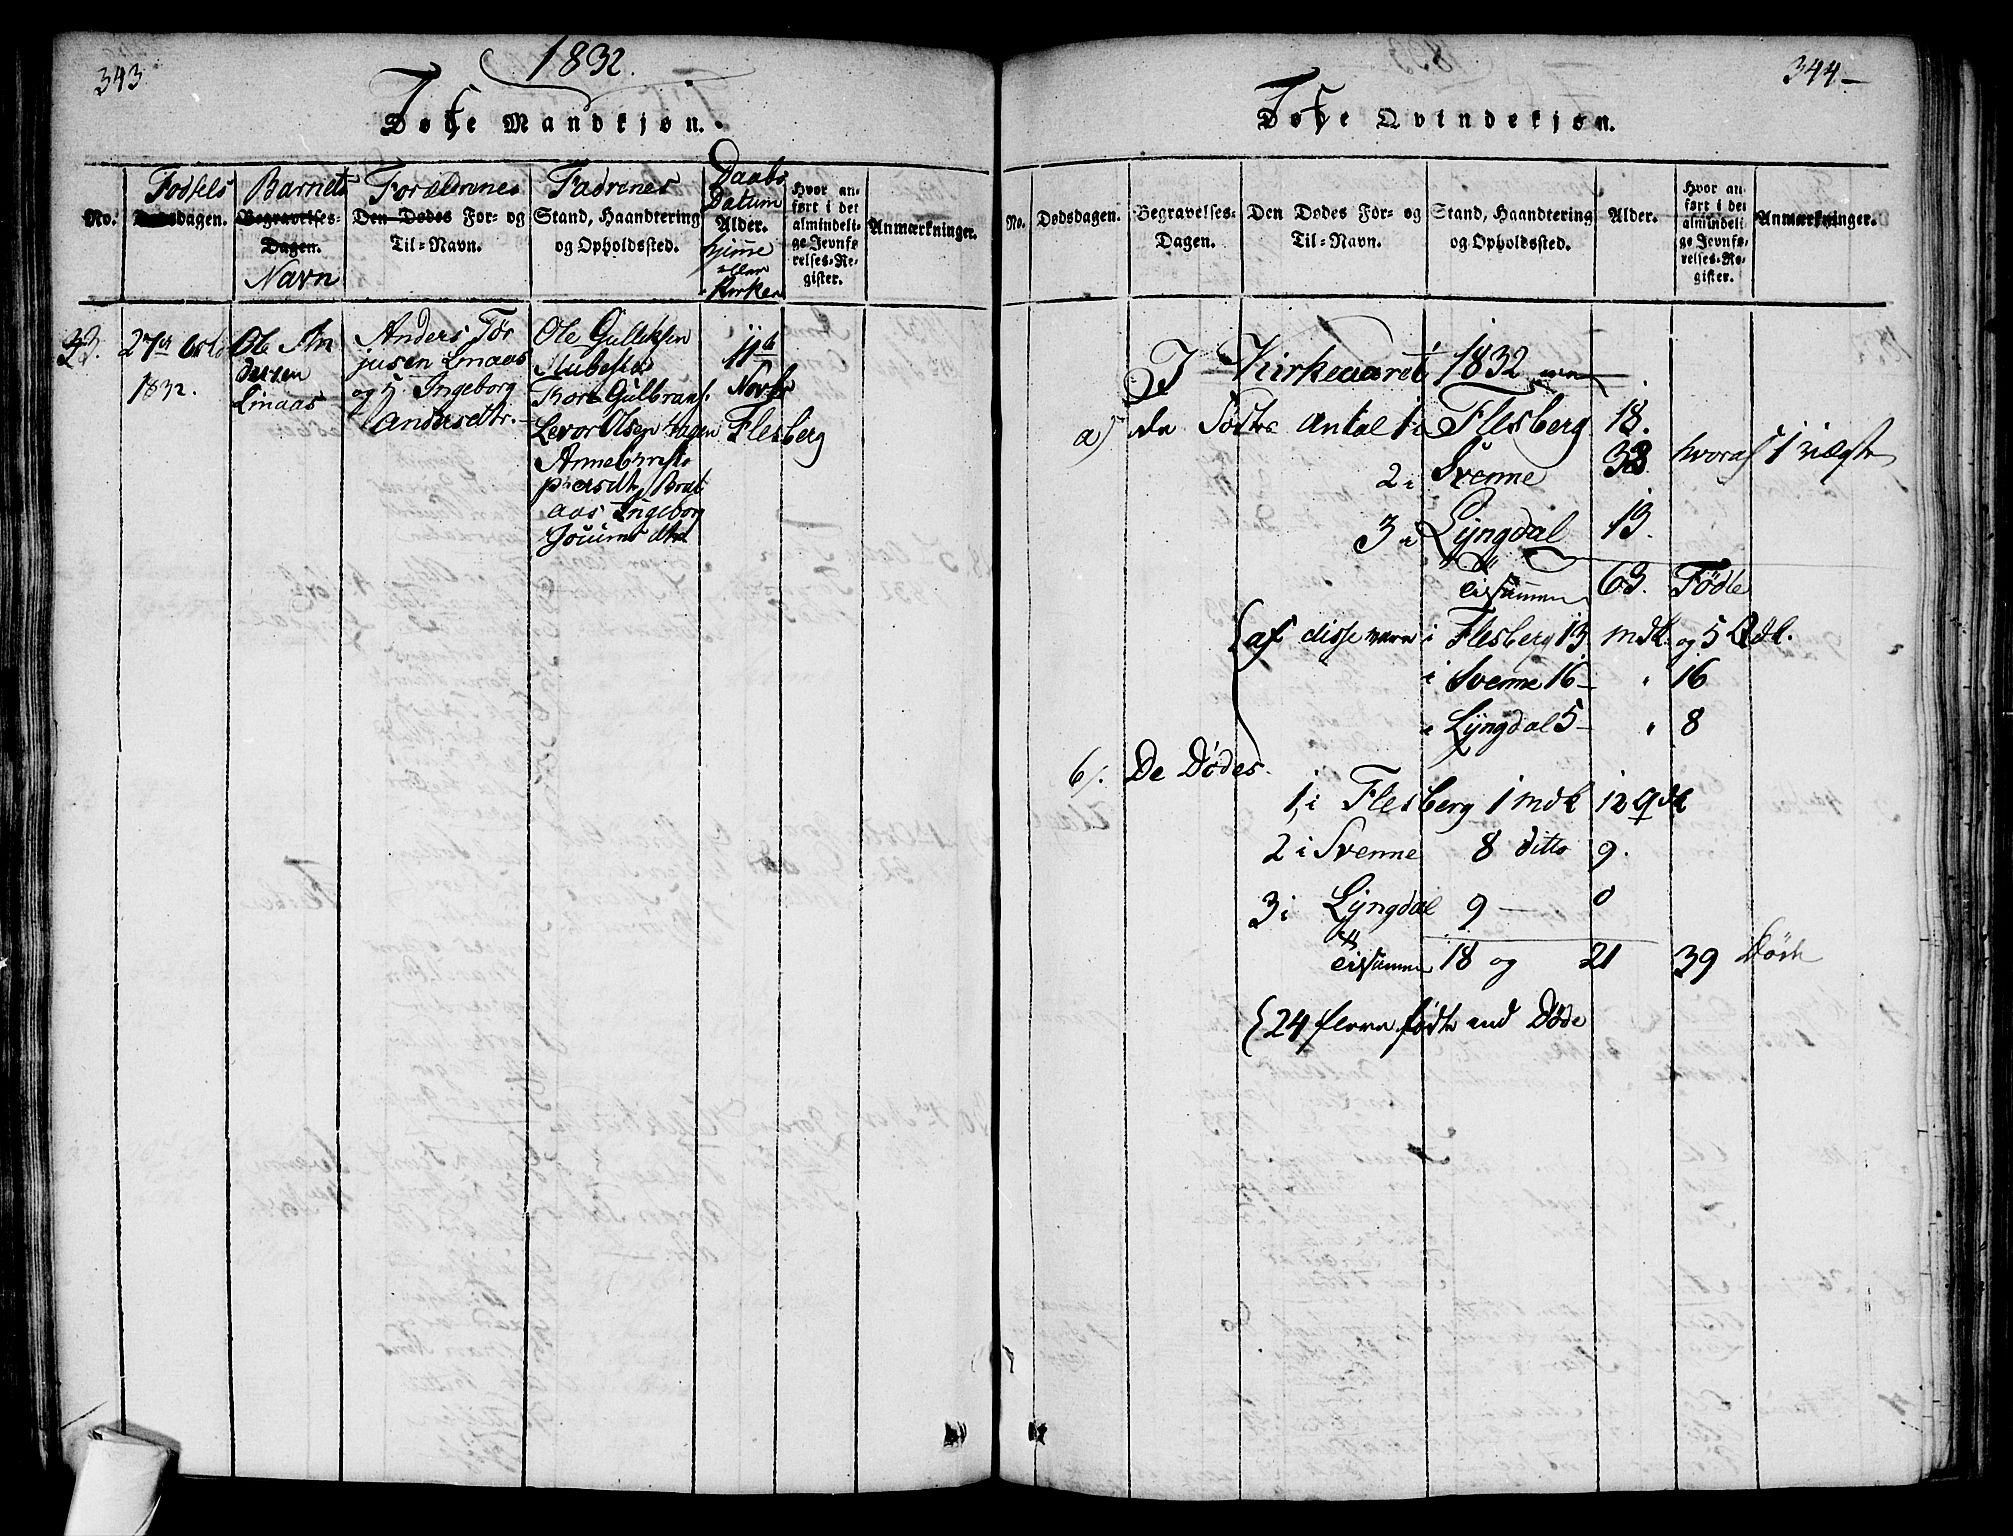 343.
1832.
Døde Mandkjøn.
No.
Fodsels
Dødsdagen.
Barnets
Begravelses-
Dagen.
Navn
Forældrenes
Den Dødes For- og
Til-Navn.
Fadrenes
Stand, Haandtering
og Opholdssted.
Daabs
Datum
Alder.
hjemme
eller
Kirken
Hvor an-
ført i det
almindeli-
ge Jevnfø-
relses-Re-
gister.
Anmærkninger.
33.
27de Octb
1832.
Ole An
dersen
Linaas
Anders Tor
jusen Linaas
og H Ingeborg
Andersdtr.
Ole Gulleksen
Kort Gulbrans.
Levor Olsen Hagen
Anne Christo
phersdtr Brat
aas Ingeborg
11te
Novbr
Flesberg
344
Døde Qvindekjøn.
No.
Dødsdagen.
Begravelses-
Dagen.
Den Dødes For- og
Til-Navn.
Stand, Haandtering
og Opholdssted.
Alder.
Hvor an-
ført i det
almindeli-
ge Jevnfø-
relses-Re-
gister.
Anmærkninger.
I Kirkeaaret 1832 
a) de Fødtes Antal 1 i Flesberg 18.
2 i Svenne 33. hvoraf 1 uægte
3 i Lyngdal 13.
tilsammen 63. Fødte
{af disse vare i Flesberg 13 mdk. og 5 Qdk.
i Svenne 16 - " 16
i Lyngdal 5 - " 8
b/. De Dødes.
1, i Flesberg 1 mdk 12 qdk
2 i Svenne 8 ditto 9.
3 i Lyngdal 9 — 0
tilsammen 18 og 21 39 Døde
{24 flere fødte end Døde